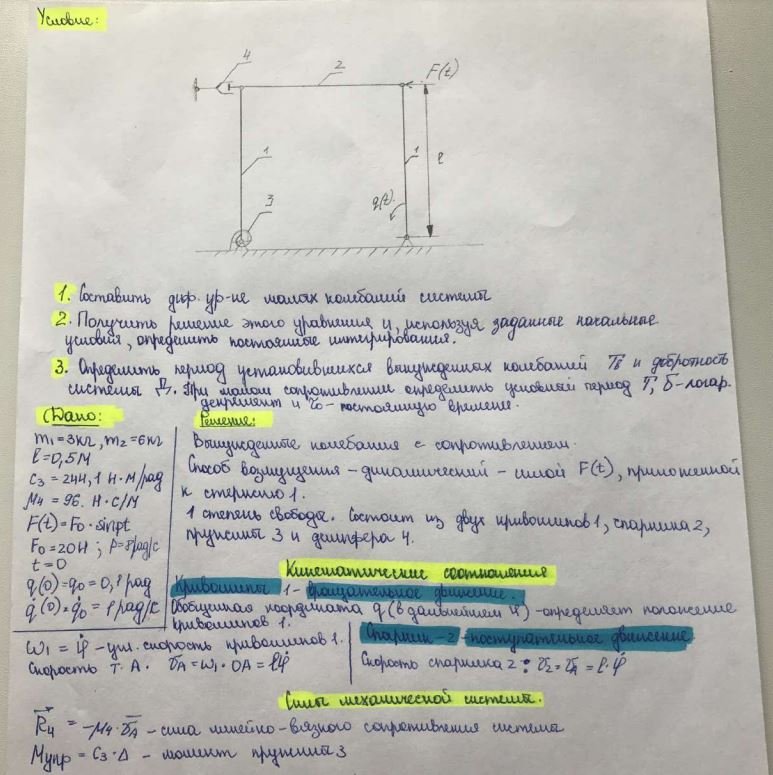 Условие:
4
2
F(t)
1
1
l
q(t)
3
1. Составить диф. ур-ие малых колебаний системы
2. Получить решение этого уравнения и, используя заданные начальные
условия, определить постоянные интегрирования.
3. Определить период установившихся вынужденных колебаний Tв и добротность
системы Д. При малом сопротивлении определить условный период T, δ-логар.
декремент и τ0 - постоянную времени.
Дано:
m1=3кг, m2=6кг
l=0,5м
c3=2441,1 Н·м/рад
μ4=96 Н·с/м
F(t)=F0·sinpt
F0=20Н; p=8рад/с
t=0
q(0)=q0=0,1 рад
q̇(0)=q̇0=1 рад/с
Решение:
Вынужденные колебания с сопротивлением.
Способ возмущения - динамический - силой F(t), приложенной
к стержню 1.
1 степень свободы. Состоит из двух кривошипов 1, спарника 2,
пружины 3 и демпфера 4.
Кинематические соотношения
Кривошипы 1 - вращательное движение.
Обобщенная координата q (в дальнейшем φ) - определяет положение
кривошипов 1.
ω1 = φ̇ - угл. скорость кривошипов 1.
Скорость т. A. vA=ω1·OA=lφ̇
Спарник-2 - поступательное движение.
Скорость спарника 2: v2=vA=l·φ̇
Силы механической системы.
R4 = -μ4·vA - сила линейно-вязкого сопротивления системы
Mупр = c3·Δ - момент пружины 3